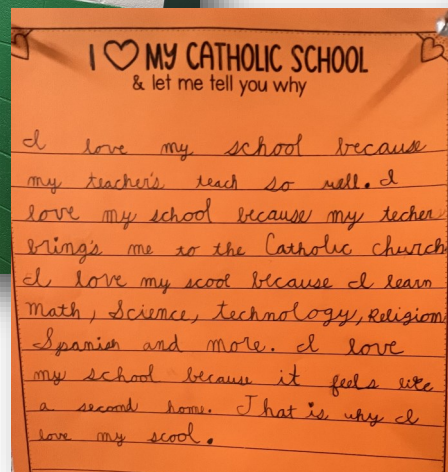 I ♡ MY CATHOLIC SCHOOL
& let me tell you why
I love my school because
my teacher's teach so well. I
love my school because my techer
bring's me to the Catholic church
I love my scool because I learn
math, Science, technology, Religiom
Spanish and more. I love
my school because it feels like
a second home. That is why I
love my scool.